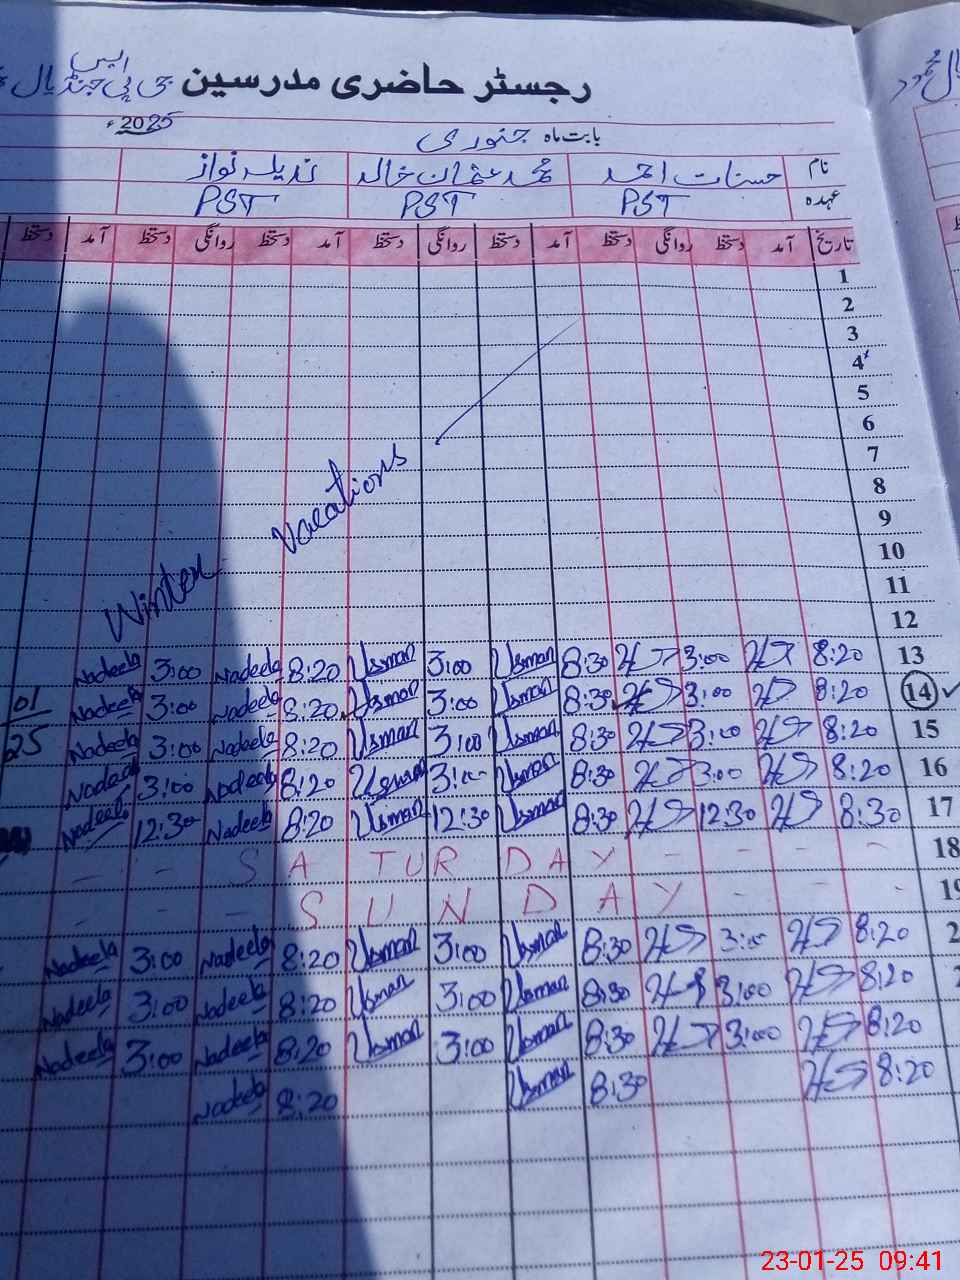 رجسٹر حاضری مدرسین جی پی ایس جنڈیال
بابت ماہ جنوری 2025ء
نام حسنات احمد محمد عثمان خالد نذیلہ نواز
عہدہ PST PST PST
تاریخ آمد دستخط روانگی دستخط آمد دستخط روانگی دستخط آمد دستخط روانگی دستخط آمد دستخط
1
2
3
4
5
6
7
8
9
10
11
12
Winter Vacations
13 8:20 3:00 8:30 Usman 3:00 Usman 8:20 Nadeela 3:00 Nadeela
14 8:20 3:00 8:30 Usman 3:00 Usman 8:20 Nadeela 3:00 Nadeela 01
15 8:20 3:00 8:30 Usman 3:00 Usman 8:20 Nadeela 3:00 Nadeela 25
16 8:20 3:00 8:30 Usman 3:00 Usman 8:20 Nadeela 3:00 Nadeela
17 8:30 12:30 8:30 Usman 12:30 Usman 8:20 Nadeela 12:30 Nadeela
18 SATURDAY
19 SUNDAY
2 8:20 3:00 8:30 Usman 3:00 Usman 8:20 Nadeela 3:00 Nadeela
8:20 3:00 8:30 Usman 3:00 Usman 8:20 Nadeela 3:00 Nadeela
8:20 3:00 8:30 Usman 3:00 Usman 8:20 Nadeela 3:00 Nadeela
8:20 8:30 Usman 8:20 Nadeela
23-01-25 09:41